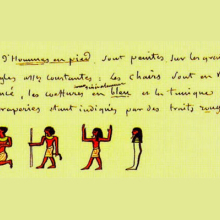 d'Hommes en pied. sont peintes sur les gra
gles assez constantes: les chairs sont en r
généralement
ncé, les coëffures en bleu et la tunique
raperies étant indiqués par des traits roug